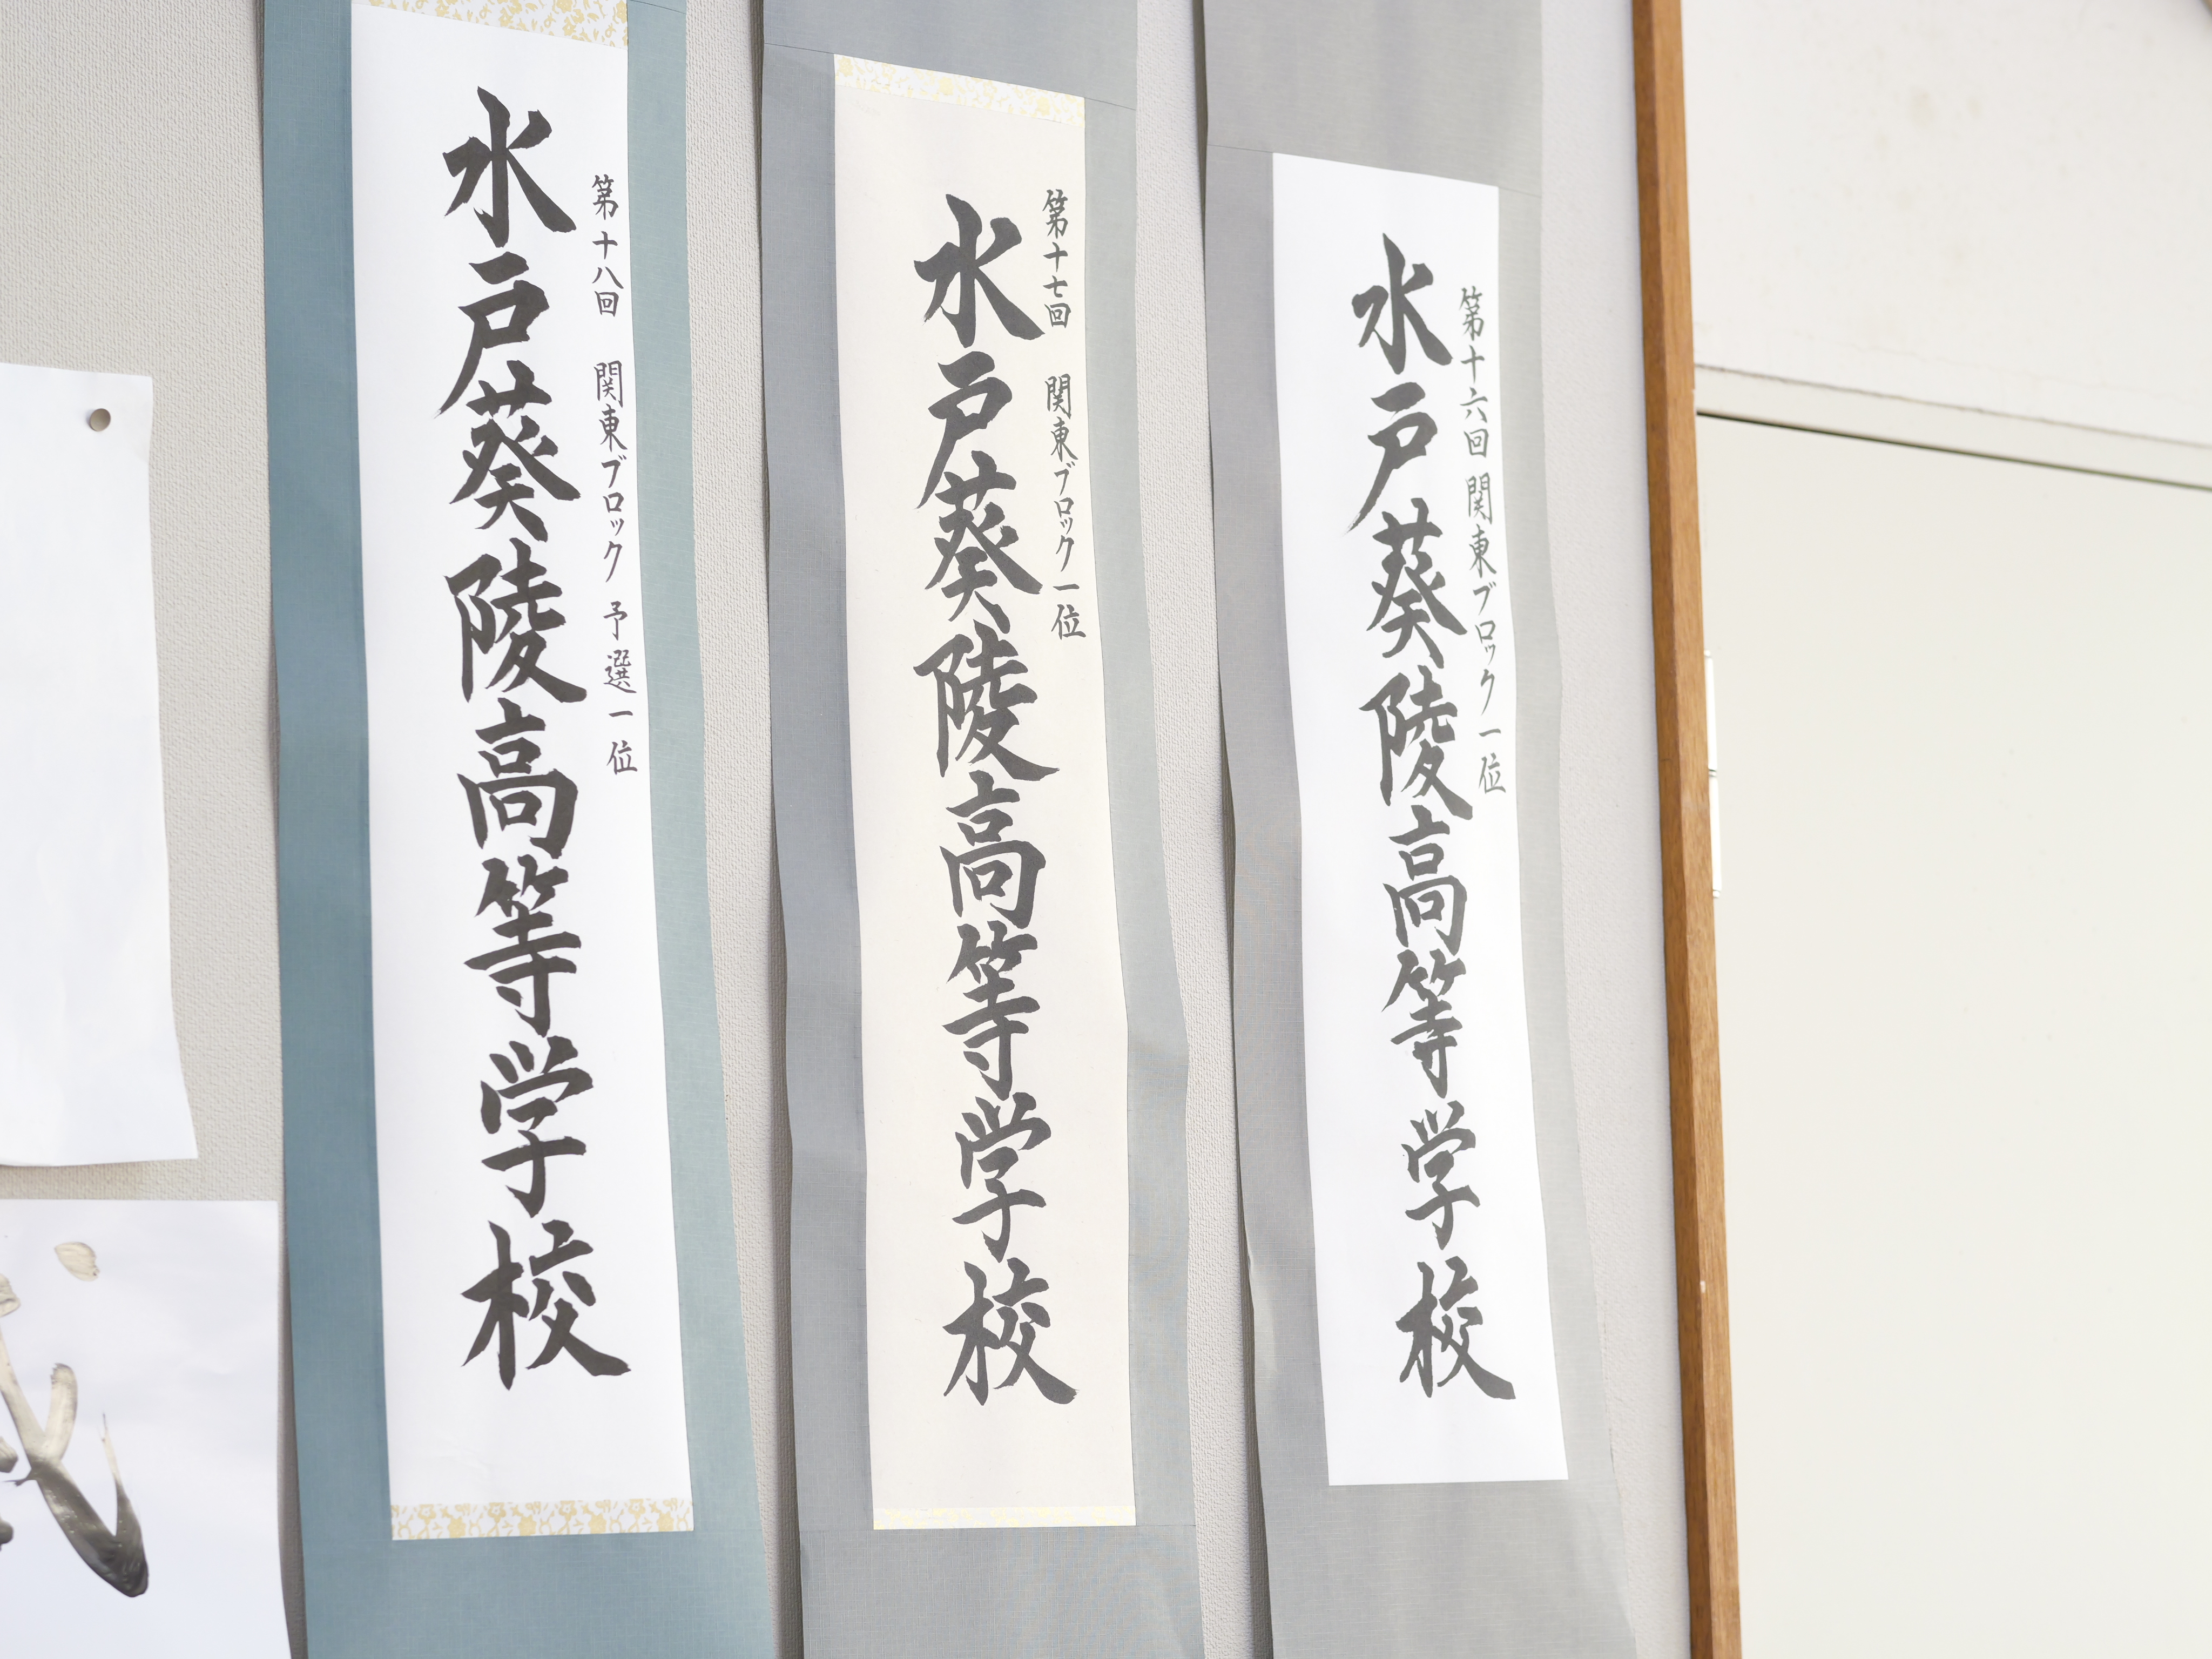 第十六回 関東ブロック一位
水戸葵陵高等学校
第十七回 関東ブロック一位
水戸葵陵高等学校
第十八回 関東ブロック 予選一位
水戸葵陵高等学校